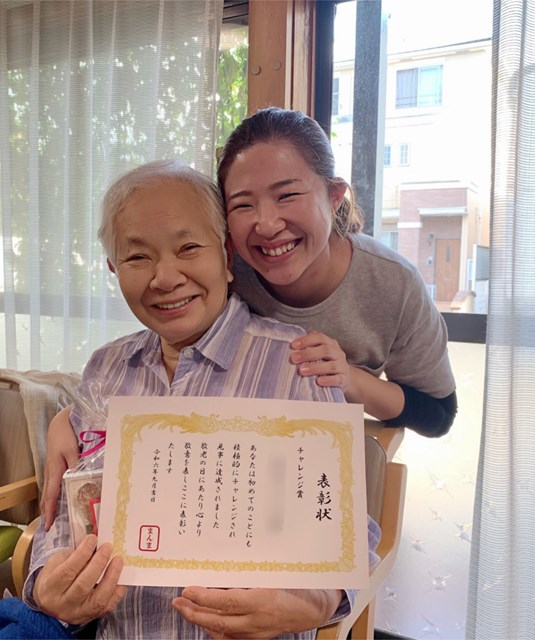 表彰状
チャレンジ賞
あなたは初めてのことにも
積極的にチャレンジされ
見事に達成されました
敬老の日にあたり心より
敬意を表しここに表彰い
たします
令和六年九月吉日
まんま